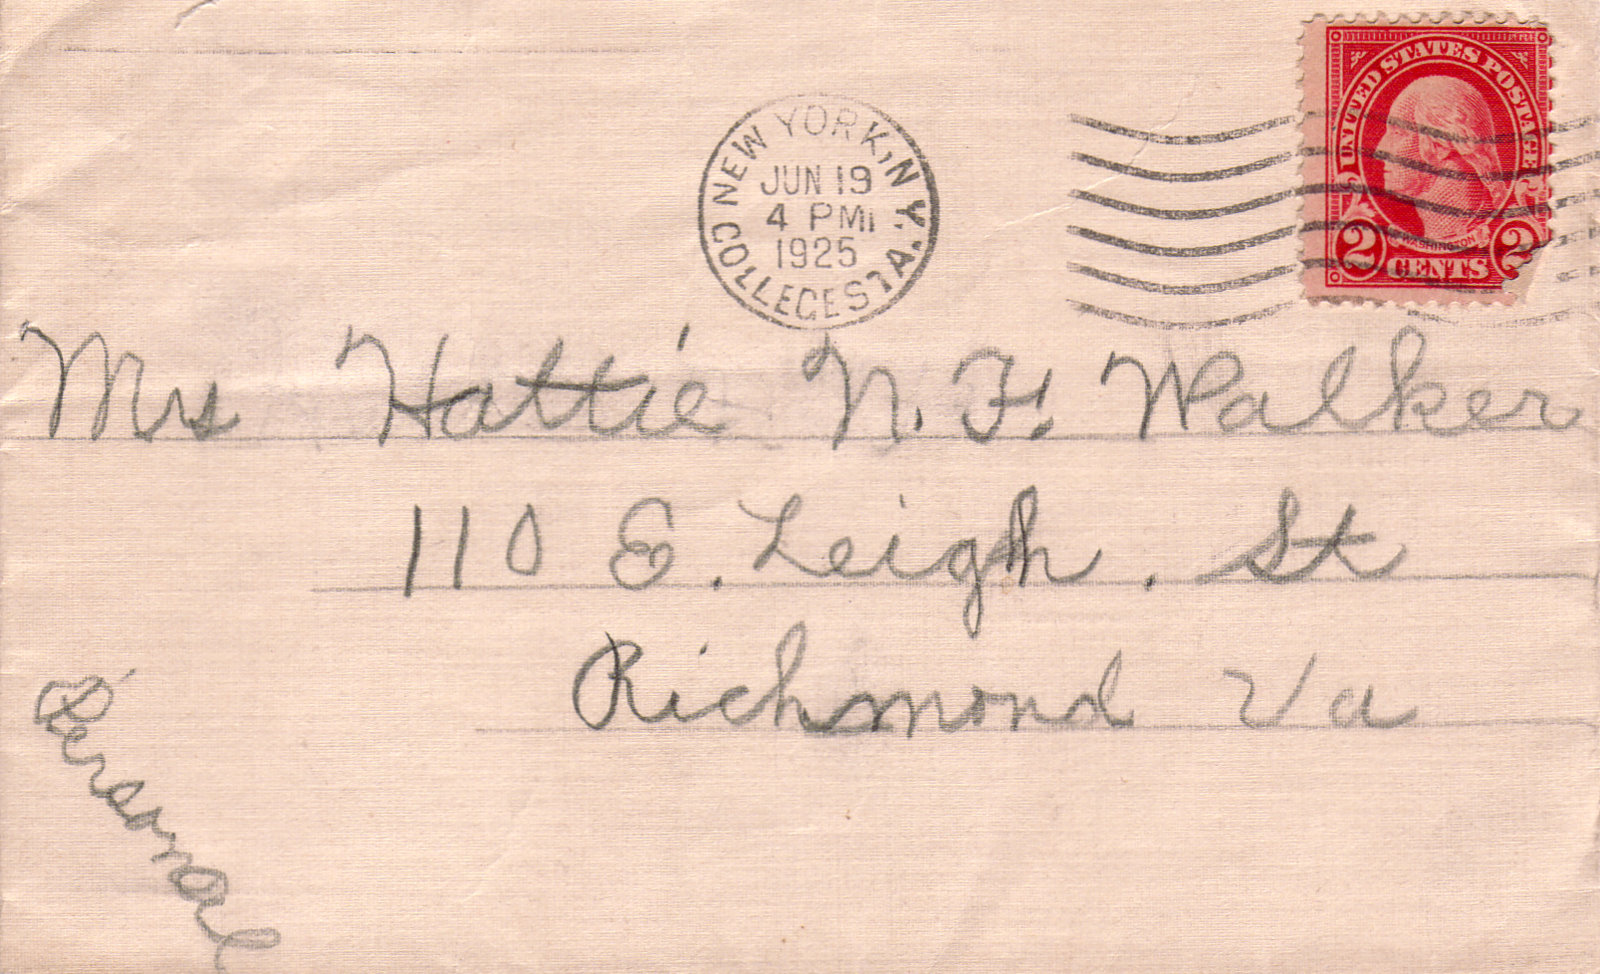 UNITED STATES POSTAGE
WASHINGTON
2 CENTS 2
NEW YORK, N.Y.
JUN 19
4 PM
1925
COLLEGE STA.
Mrs Hattie N. F. Walker
110 E. Leigh. St
Richmond Va
Personal